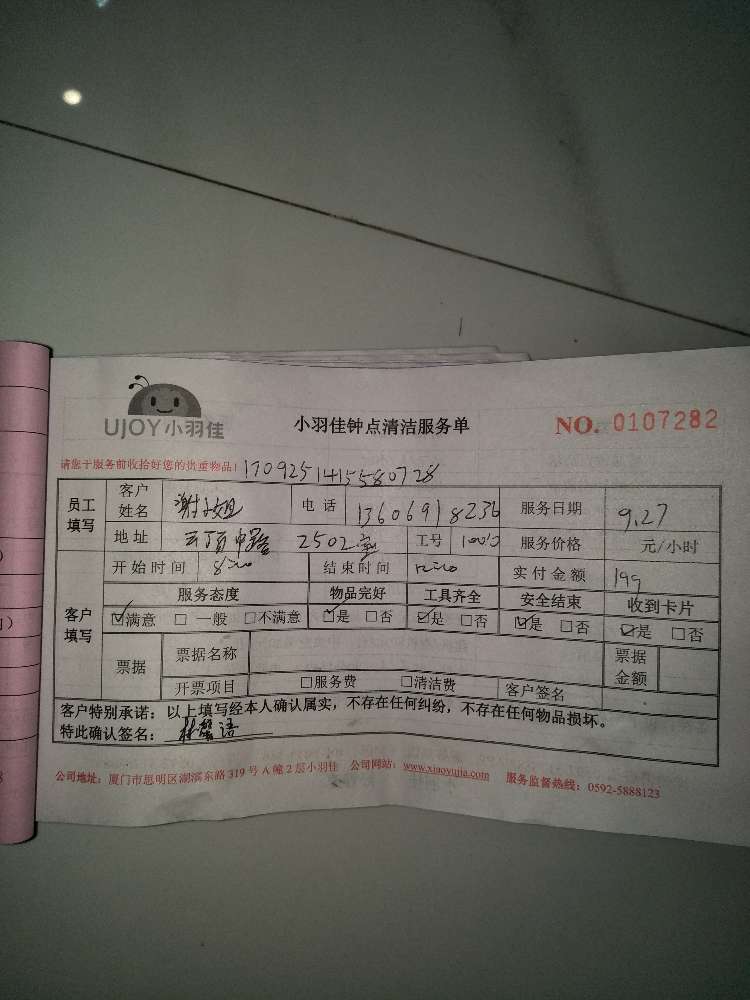 UJOY小羽佳
小羽佳钟点清洁服务单
NO. 0107282
请您于服务前收拾好您的贵重物品! 17092514155580728
员工填写 客户姓名 谢小姐 电话 13606918236 服务日期 9.27
地址 云顶中路 2502室 工号 服务价格 元/小时
开始时间 8:00 结束时间 12:00 实付金额 199
客户填写 服务态度 物品完好 工具齐全 安全结束 收到卡片
☑满意 □一般 □不满意 ☑是 □否 ☑是 □否 ☑是 □否 ☑是 □否
票据 票据名称 票据金额
开票项目 □服务费 □清洁费 客户签名
客户特别承诺：以上填写经本人确认属实，不存在任何纠纷，不存在任何物品损坏。
特此确认签名：
公司地址：厦门市思明区湖滨东路 319 号 A 幢 2 层小羽佳 公司网站：www.xiaoyujia.com 服务监督热线：0592-5888123